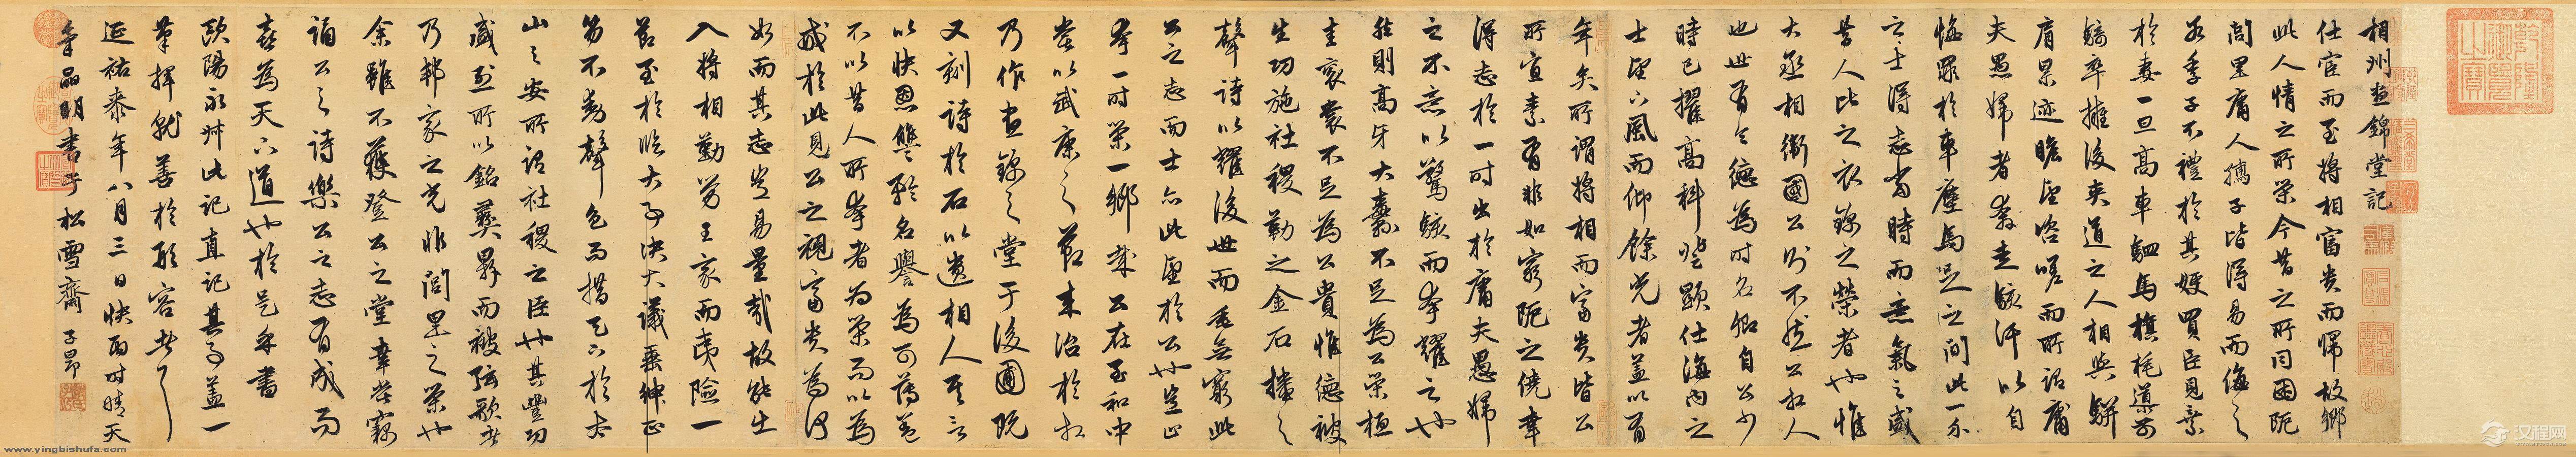 乾隆御覽之寶
相州昼錦堂記
仕宦而至將相富貴而歸故鄉
此人情之所榮今昔之所同困阨
閭里庸人孺子皆得易而侮之
若季子不禮於其嫂買臣見棄
於妻一旦高車駟馬旗旄導前
騎卒擁後夾道之人相與駢
肩累迹瞻望咨嗟而所謂庸
夫愚婦者奔走駭汗以自
悔罪於車塵馬足之間此一介
之士得志當時而意氣之盛
昔人比之衣錦之榮者也惟
大丞相衛國公則不然公相人
也世有令德為時名卿自公少
時已擢高科登顯仕海内之
士望下風而仰餘光者蓋以有
年矣所謂將相而富貴皆公
所宜素有非如窮阨之僥幸
得志於一時出於庸夫愚婦
之不意以驚駭而夸耀之也
然則高牙大纛不足為公榮桓
圭衮裳不足為公貴惟德被
生功施社稷勒之金石播之
聲詩以耀後世而垂無窮此
公之志而士亦此望於公也豈止
夸一時榮一鄉哉公在至和中
嘗以武康之節来治於相
乃作昼錦之堂于後圃既
又刻詩於石以遺相人其言
以快恩讎矜名譽為可薄蓋
不以昔人所夸者為榮而以為
戒於此見公之視富貴為何
如而其志豈易量哉故能出
入將相勤勞王家而夷險一
節至於臨大事決大議垂紳正
笏不動聲色而措天下於太
山之安所謂社稷之臣也其豐功
盛烈所以銘彝鼎而被弦歌者
乃邦家之光非閭里之榮也
余雖不獲登公之堂幸嘗竊
誦公之詩樂公之志有成而
喜為天下道也於是乎書
歐陽永叔此記直記其事蓋一
筆揮就善於形容者
延祐叄年八月三日快雨時晴天
氣晶明書于松雪齋 子昂
www.yingbishufa.com
汉程网